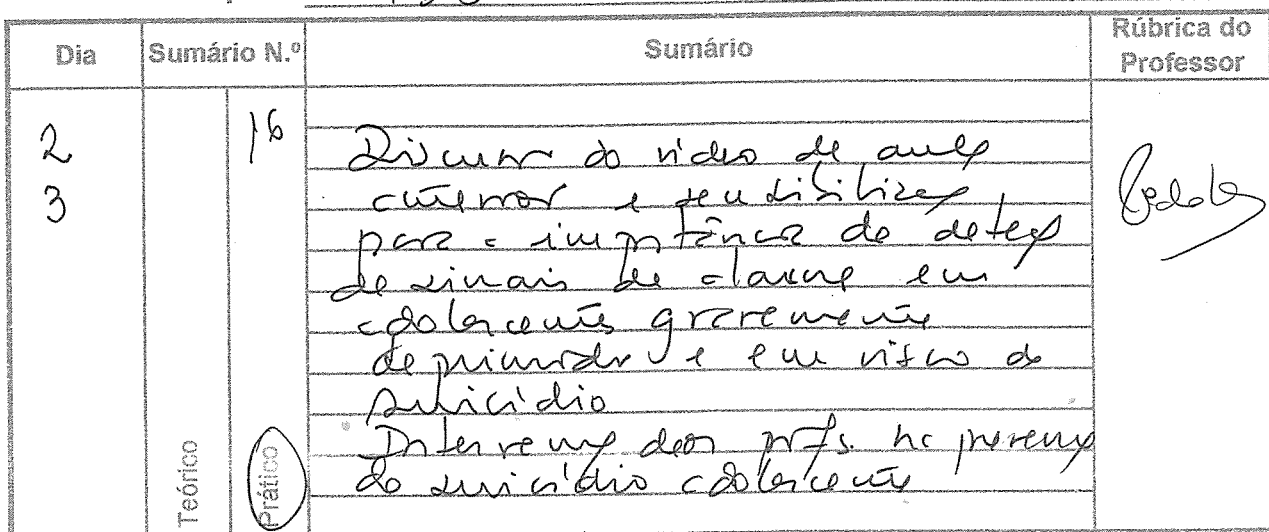 Dia Sumário N.º Sumário Rúbrica do Professor
2 16 Discussão do vídeo da aula
3 anterior e sensibilização
para a importância da detecção
de sinais de alarme em
adolescentes gravemente
deprimidos e em risco de
suicídio
Intervenção dos profs. na prevenção
do suicídio adolescente
Teórico Prático